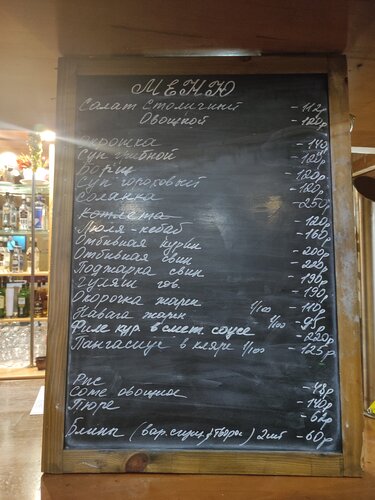 МЕНЮ
Салат Столичный - 112р
Овощной - 120р
Окрошка - 140р
Суп грибной - 120р
Борщ - 120р
Суп гороховый - 120р
Солянка - 250р
Котлета - 120р
Люля-кебаб - 160р
Отбивная курин - 200р
Отбивная свин - 220р
Поджарка свин - 190р
Гуляш гов. - 190р
Окорочка жарен - 110р
Навага жарен 1/100 - 95р
Филе кур в смет. соусе 1/100 - 220р
Пангасиус в кляре 1/100 - 125р
Рис - 48р
Соте овощное - 140р
Пюре - 62р
Блины (вар. сгущ, творог) 2шт - 60р